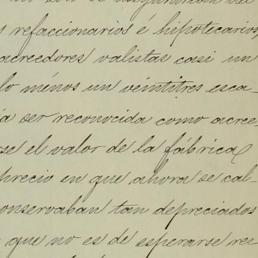 s refaccionarios é hipotecarios,
acreedores valistas casi un
lo ménos un veintitres esca
ia ser reconocida como acree
se el valor de la fábrica
precio en que ahora se cal
onservaban tan depreciados
que no es de esperarse ree